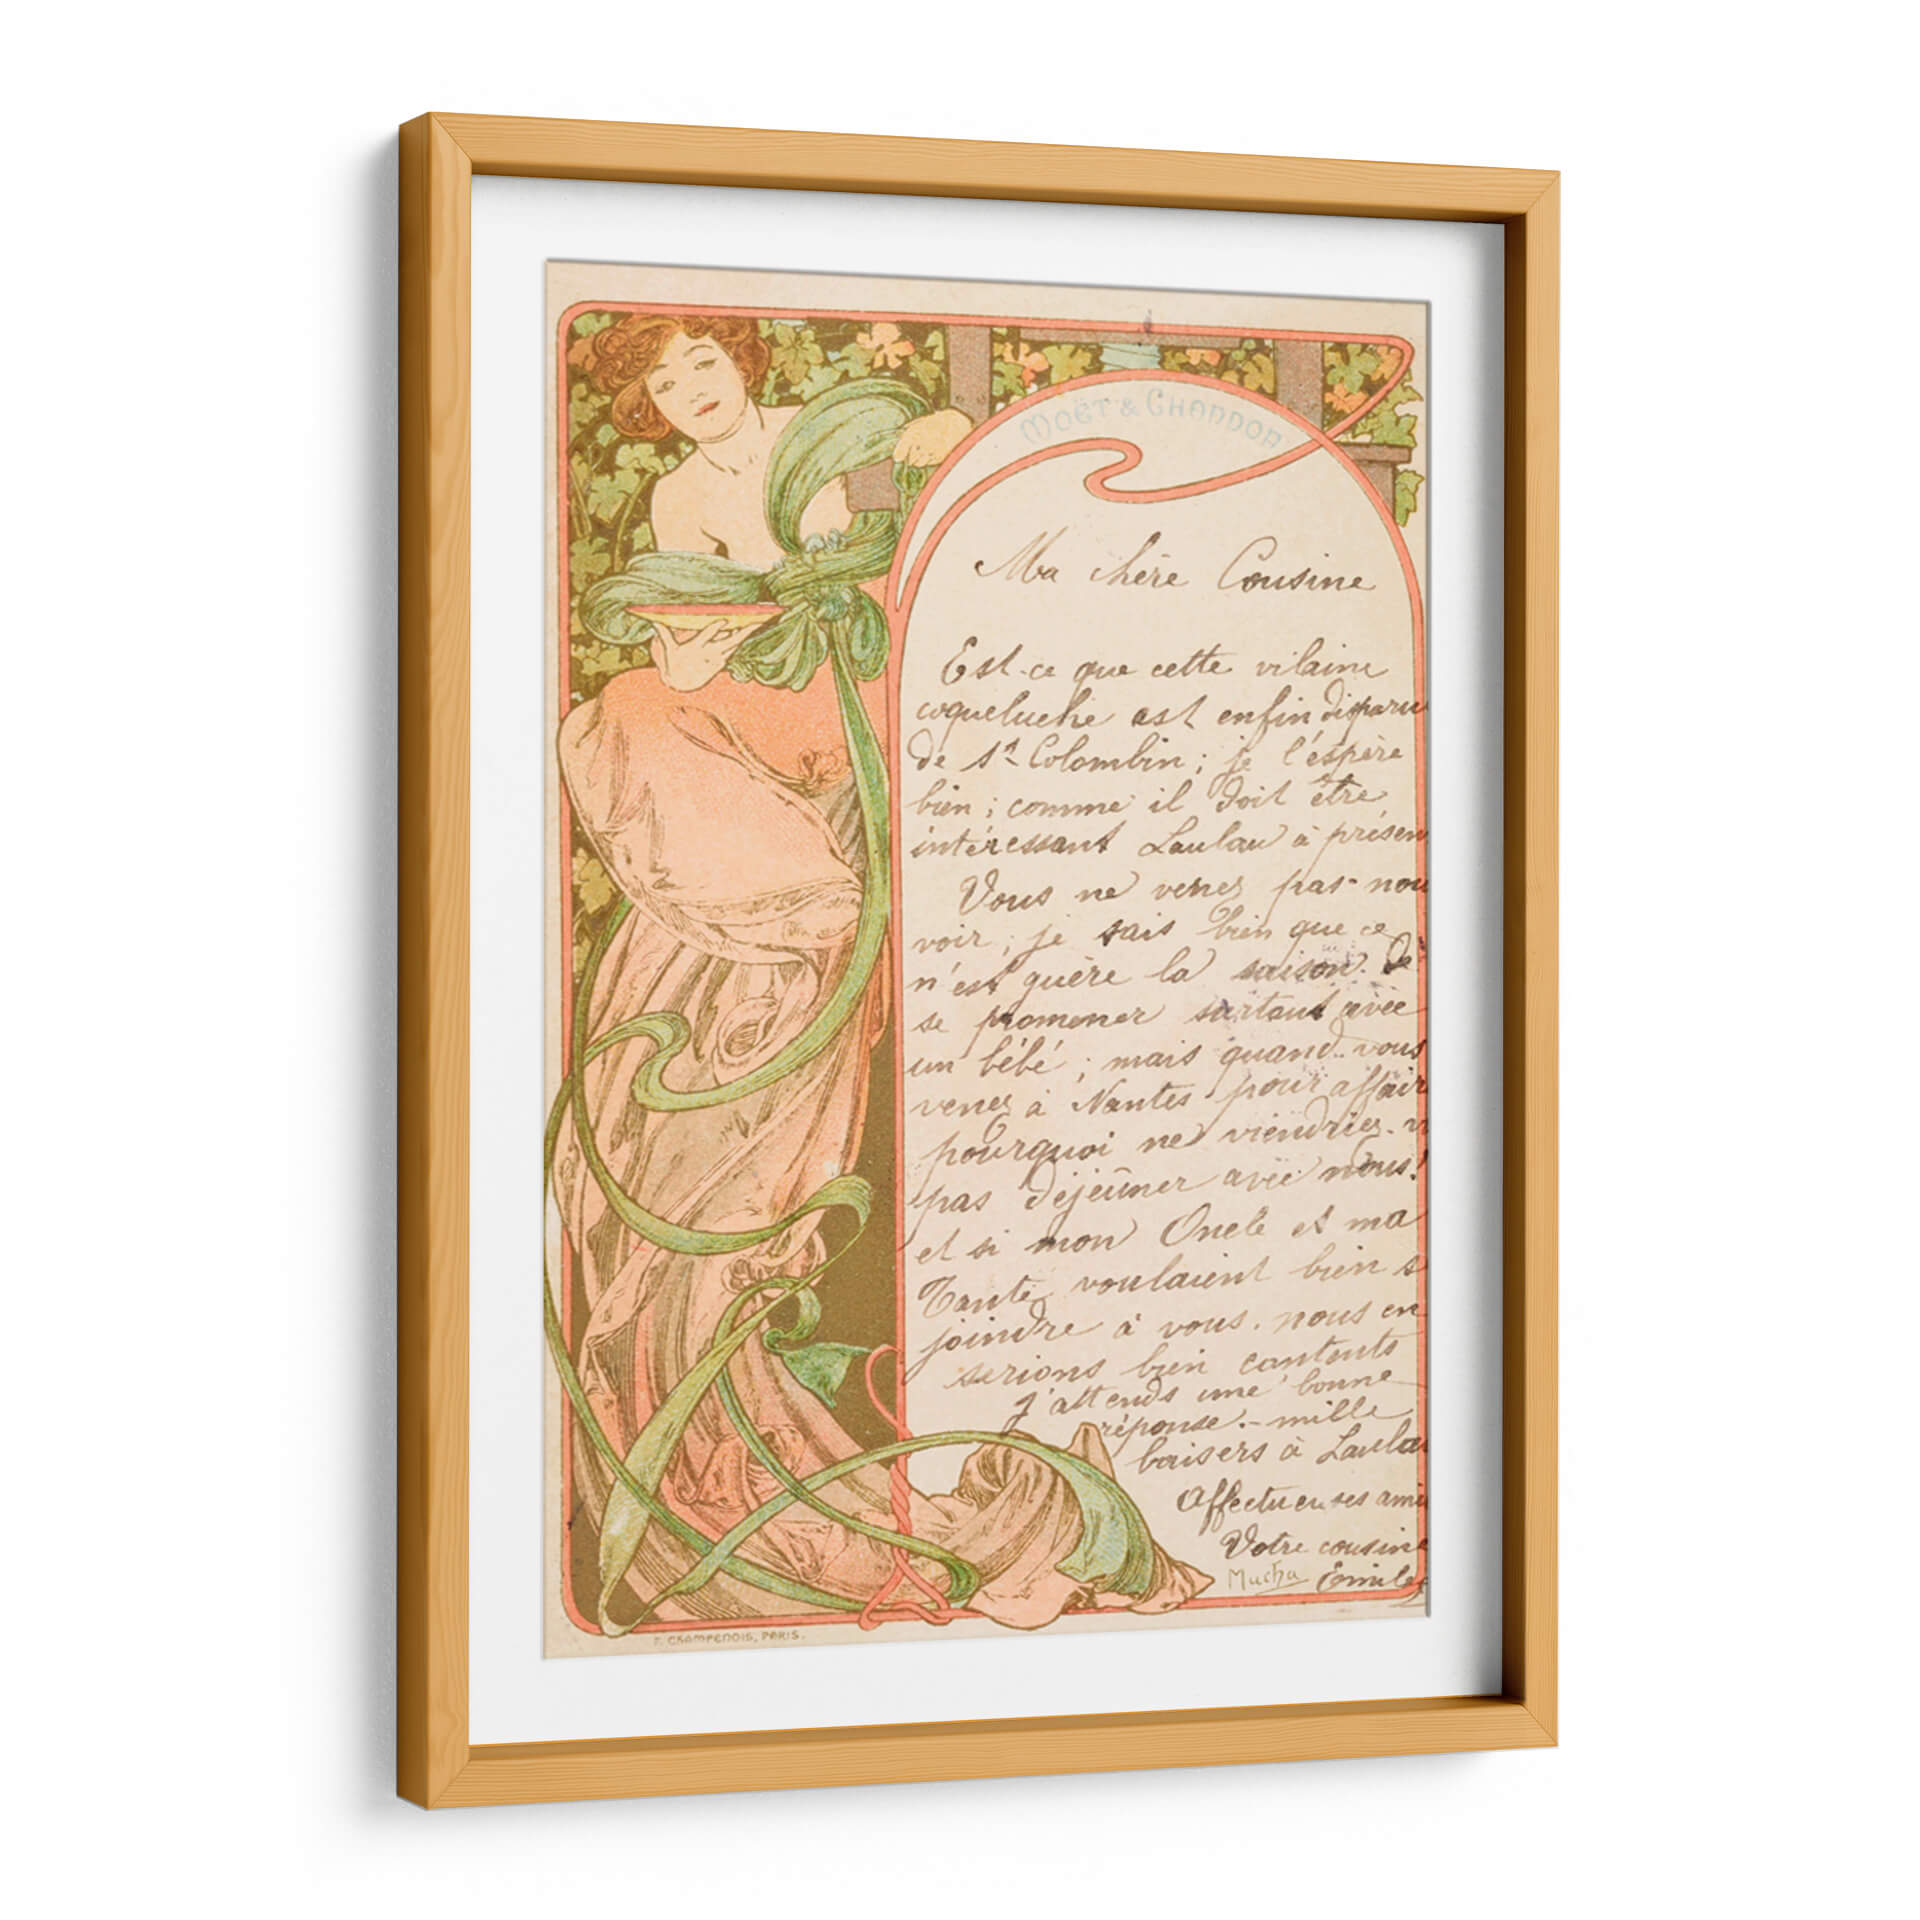 Moët & Chandon
Ma chère Cousine
Est-ce que cette vilaine
coqueluche est enfin disparu
de St Colombin ; je l'espère
bien ; comme il doit être
intéressant Laulau à présen
Vous ne venez pas nou
voir ; je sais bien que ce
n'est guère la saison de
se promener surtout avec
un bébé ; mais quand vous
venez à Nantes pour affair
pourquoi ne viendriez-v
pas déjeûner avec nous !
et si mon Oncle et ma
Tante voulaient bien s
joindre à vous. nous en
serions bien contents
J'attends une bonne
réponse. - mille
baisers à Laulau
Affectueuses ami
Votre cousine
Mucha Emilie
F. CHAMPENOIS, PARIS.